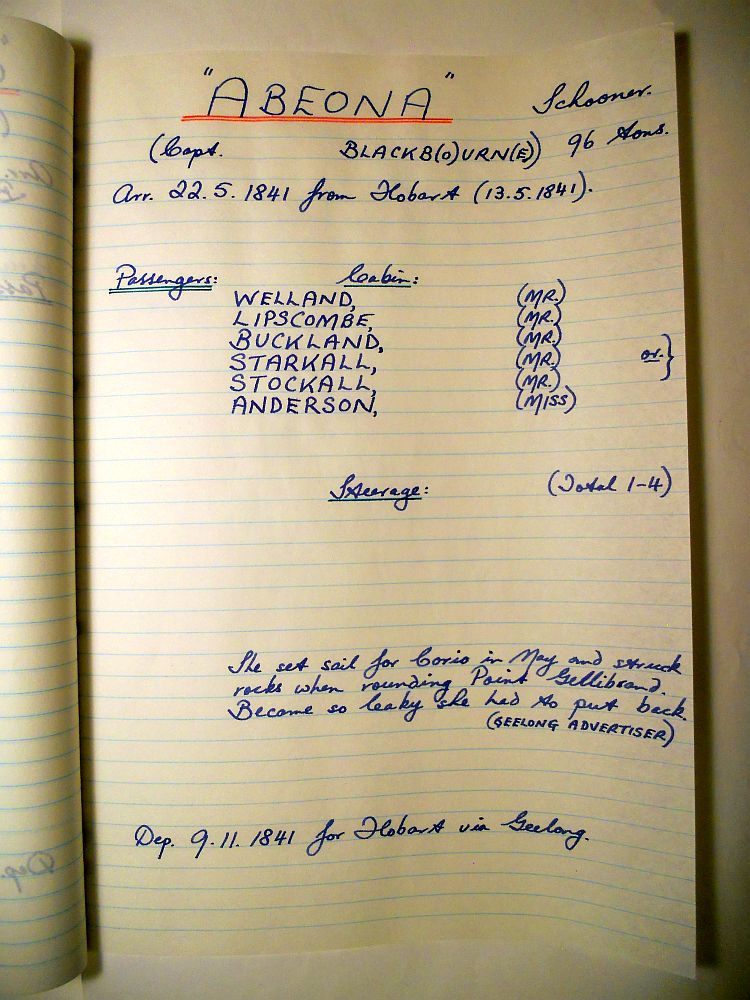 "ABEONA" Schooner.
(Capt. BLACKB(O)URN(E)) 96 tons.
Arr. 22.5.1841 from Hobart (13.5.1841).
Passengers: Cabin:
WELLAND, (MR.)
LIPSCOMBE, (MR.)
BUCKLAND, (MR.)
STARKALL, (MR.) or }
STOCKALL, (MR.)
ANDERSON, (MISS)
Steerage: (Total 1-4)
She set sail for Corio in May and struck
rocks when rounding Point Gellibrand.
Became so leaky she had to put back.
(GEELONG ADVERTISER)
Dep. 9.11.1841 for Hobart via Geelong.